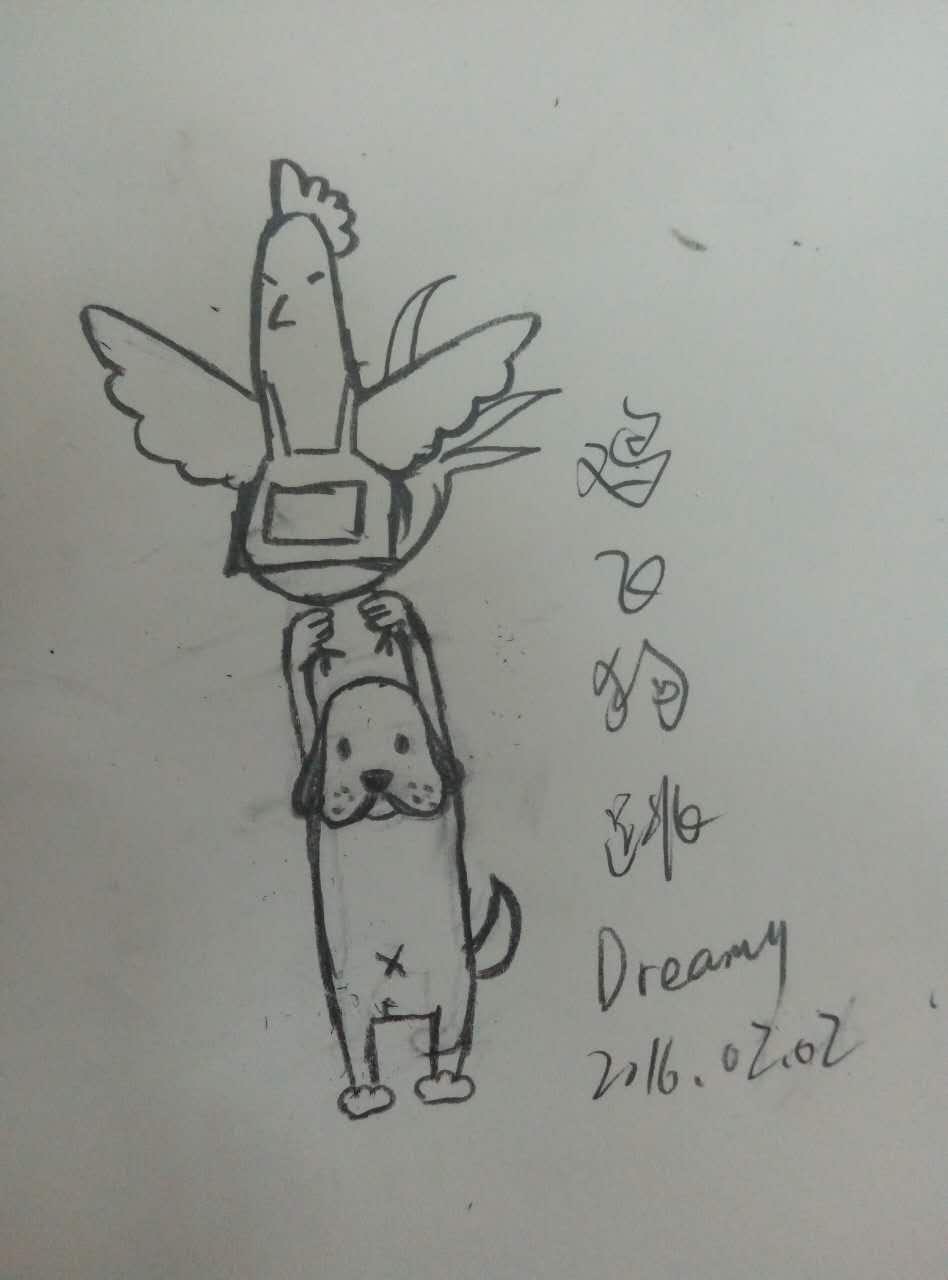 鸡
飞
狗
跳
Dreamy
2016.02.02